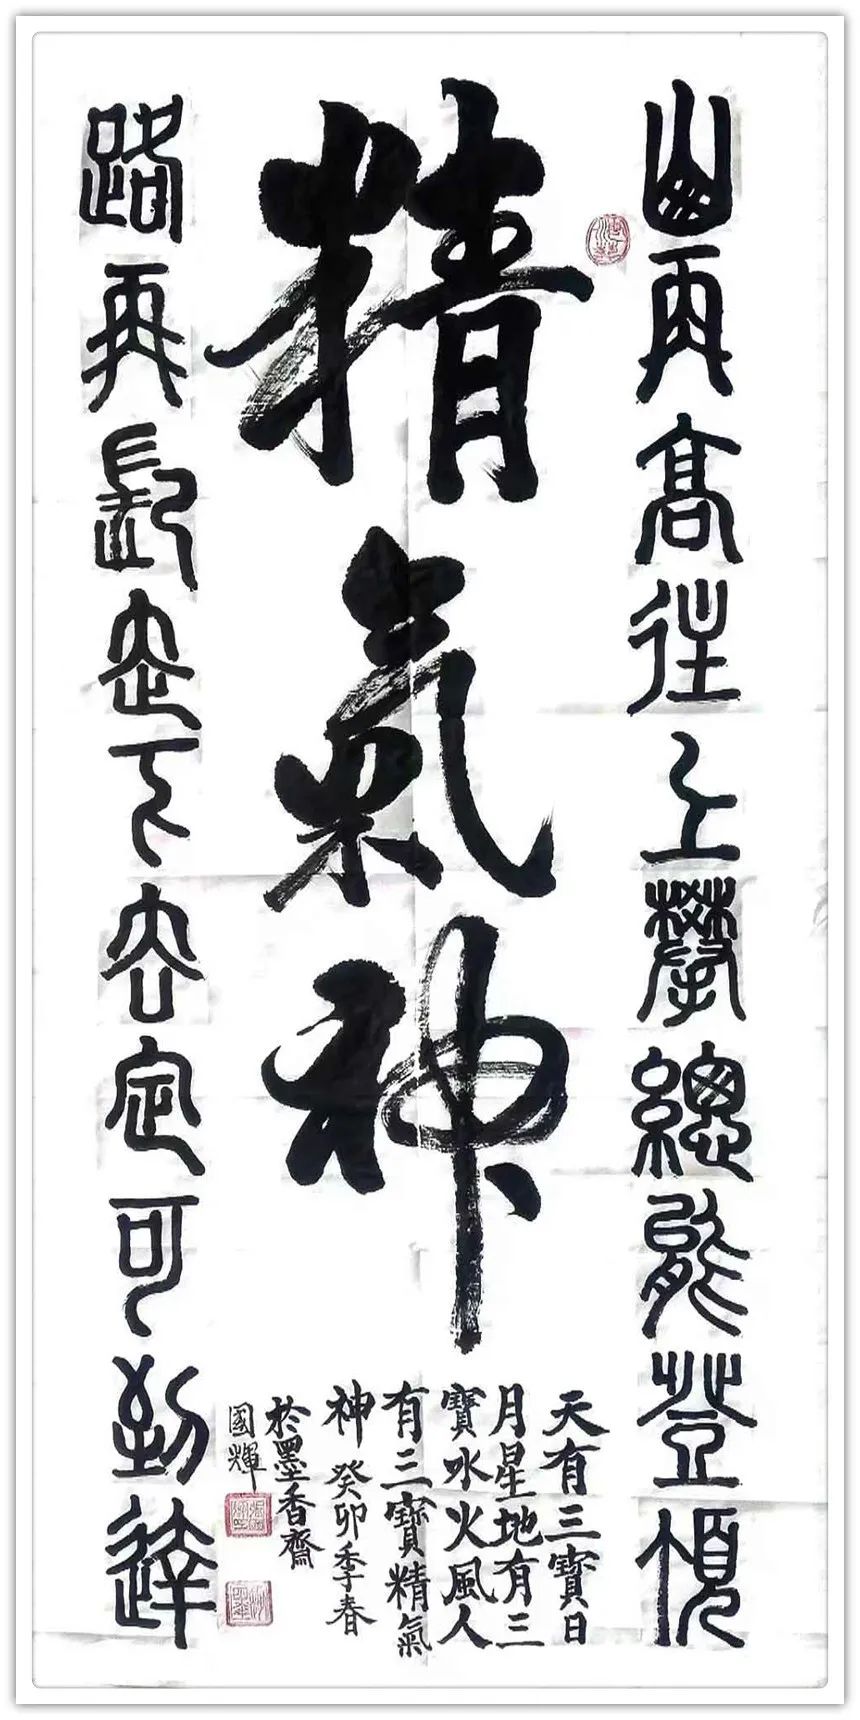 山再高往上攀總能登頂
精氣神
天有三寶日
月星地有三
寶水火風人
有三寶精氣
神 癸卯季春
於墨香齋
國輝
路再長走下去定可到達